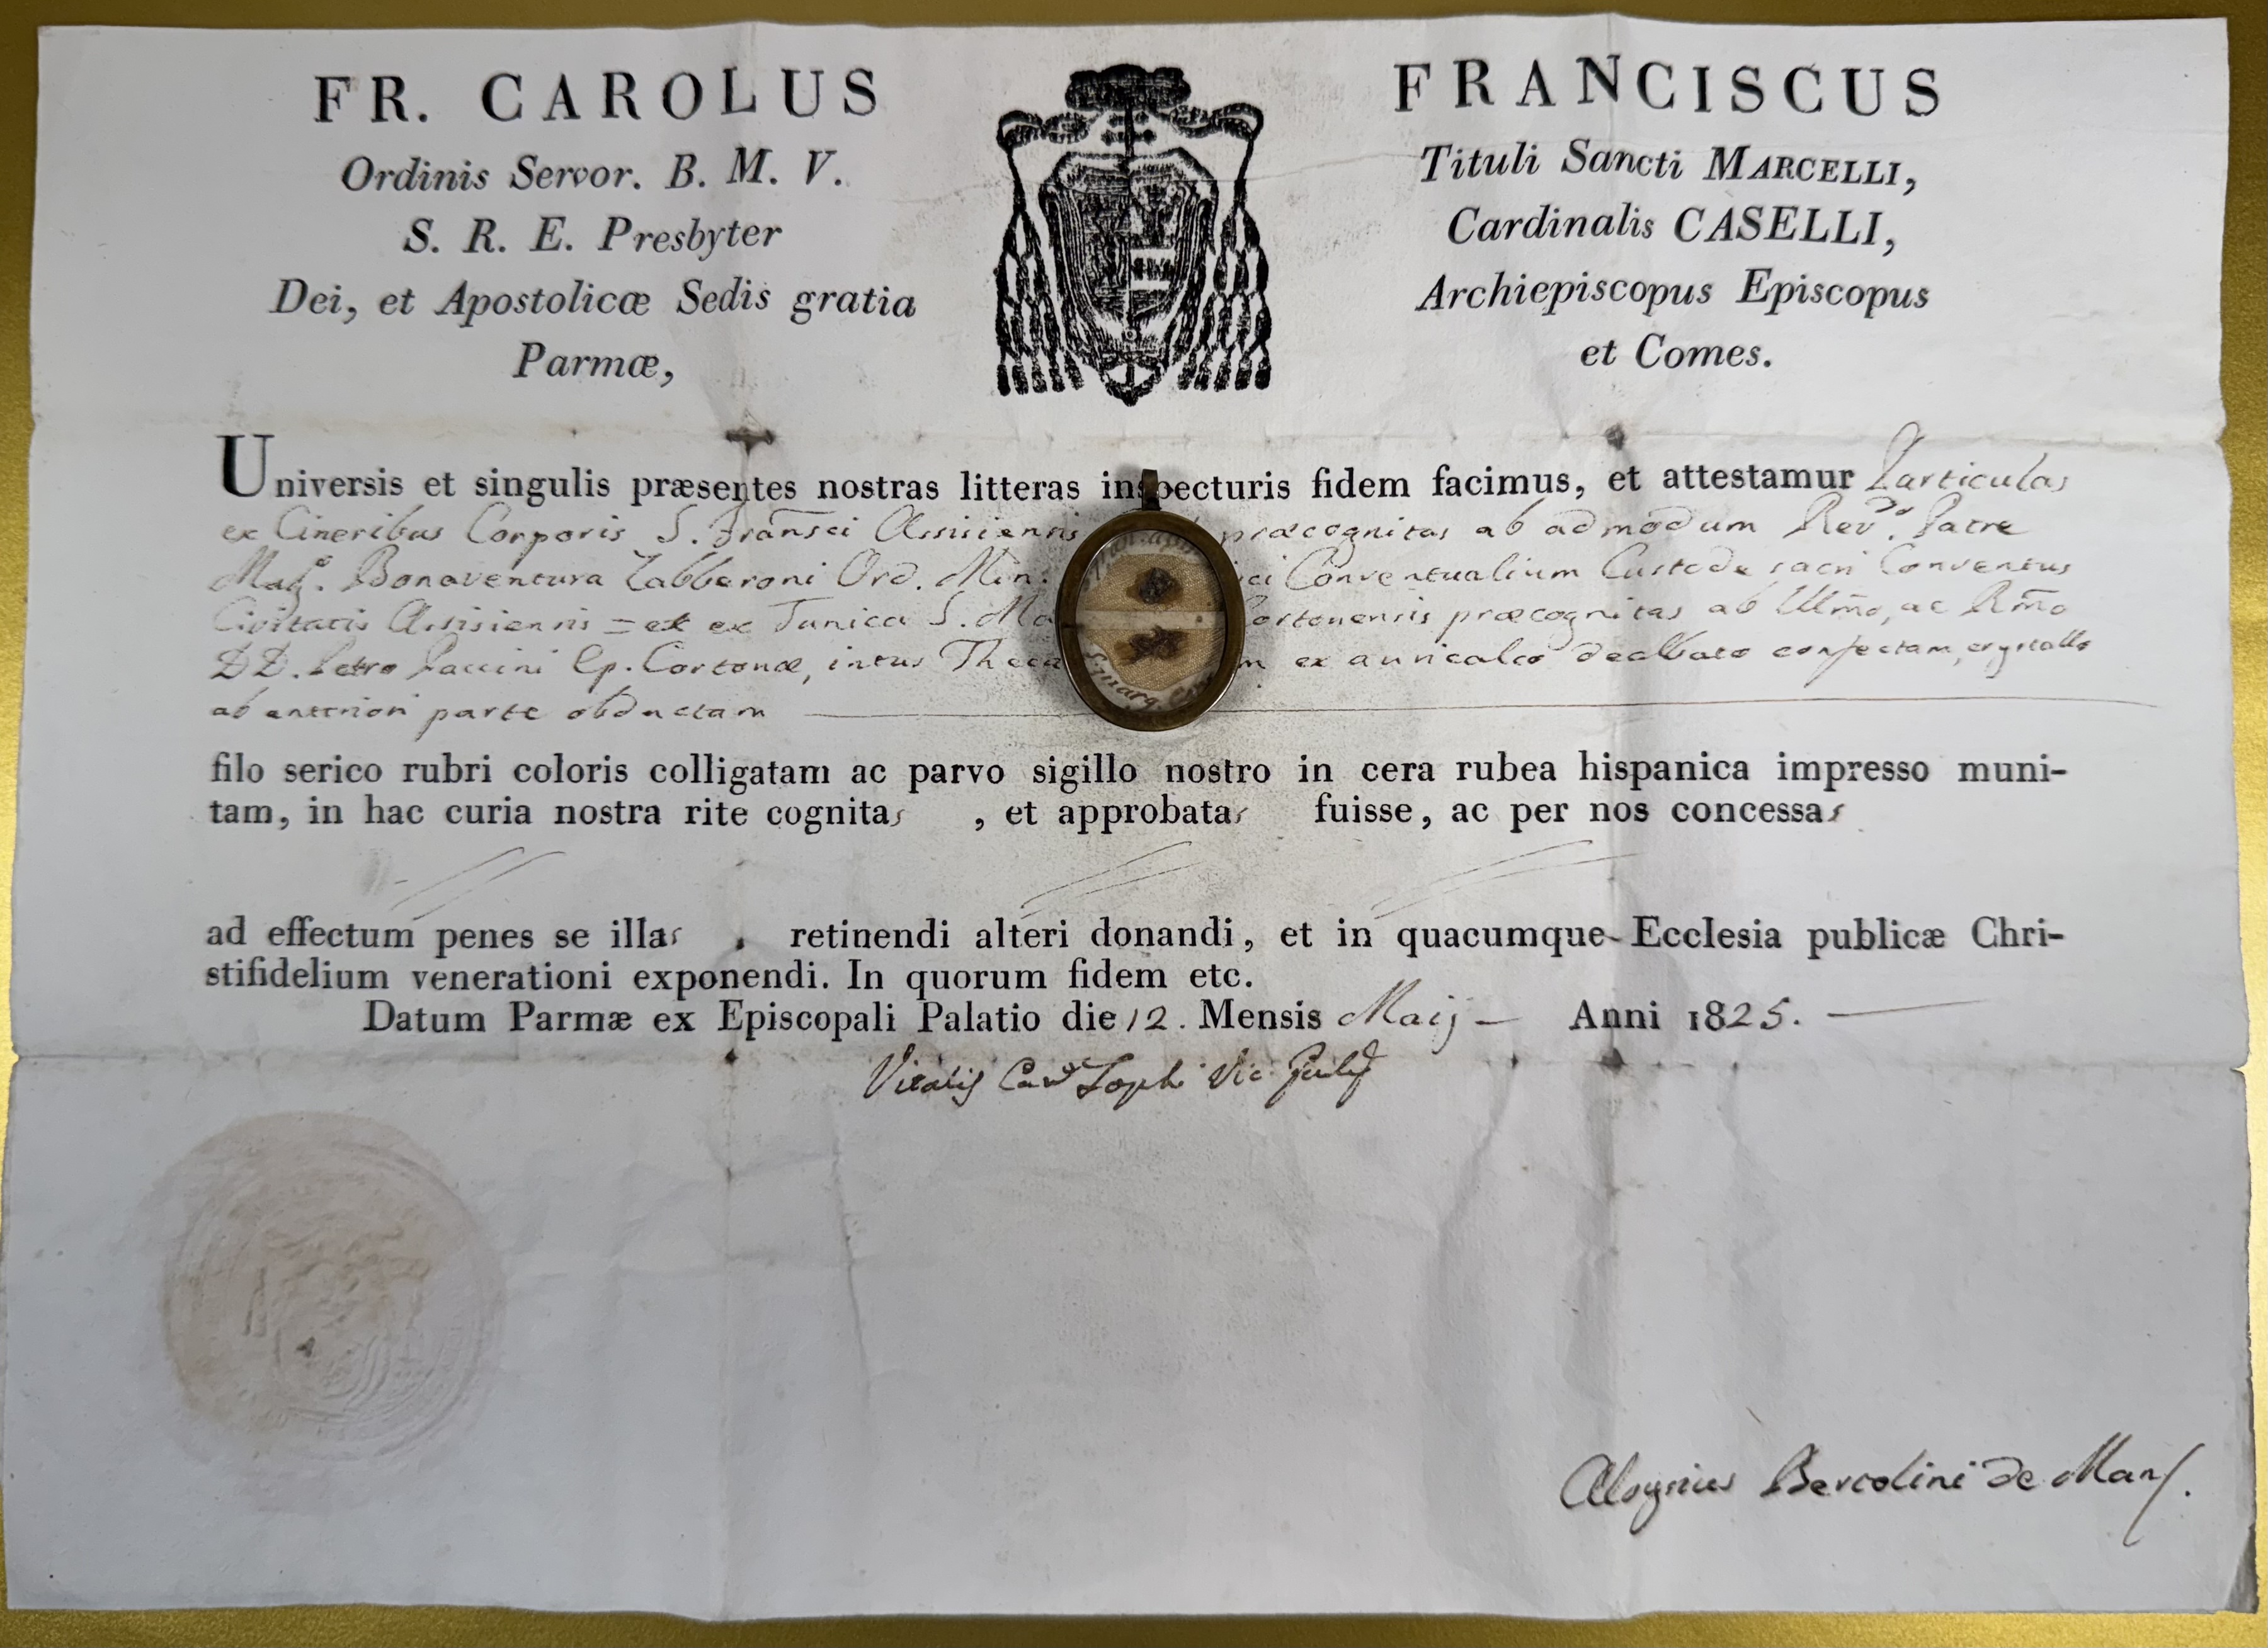 FR. CAROLUS
Ordinis Servor. B. M. V.
S. R. E. Presbyter
Dei, et Apostolicæ Sedis gratia
Parmæ,
FRANCISCUS
Tituli Sancti MARCELLI,
Cardinalis CASELLI,
Archiepiscopus Episcopus
et Comes.
Universis et singulis præsentes nostras litteras inspecturis fidem facimus, et attestamur Particulas
ex Cineribus Corporis S. Assisiensis præcognitas ab admodum Revdo. Patre
Magro. Bonaventura Zabberoni Ord. Min. Conventualium Custode sacri Conventus
Civitatis Assisiensis = et ex Tunica S. præcognitas ab Illmo, ac Rmo
DD. Petro Paccini Ep. Cortonæ, intus ex auricalco dealbato confectam, crystallo
ab anteriori parte obductam
S. Marg.
filo serico rubri coloris colligatam ac parvo sigillo nostro in cera rubea hispanica impresso muni-
tam, in hac curia nostra rite cognitas, et approbatas fuisse, ac per nos concessas
ad effectum penes se illas, retinendi alteri donandi, et in quacumque Ecclesia publicæ Chri-
stifidelium venerationi exponendi. In quorum fidem etc.
Datum Parmæ ex Episcopali Palatio die 12. Mensis Maij Anni 1825.
Vitalis Vic.
Aloysius Bertolini de